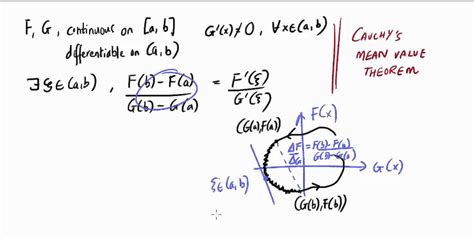 F, G, continuous on [a,b]
differentiable on (a,b)
G'(x)≠0, ∀x∈(a,b)
CAUCHY'S
MEAN VALUE
THEOREM
∃ξ∈(a,b), F(b)-F(a) / G(b)-G(a) = F'(ξ) / G'(ξ)
(G(a),F(a))
F(x)
ΔF/ΔG = F(b)-F(a) / G(b)-G(a)
G(x)
ξ∈(a,b)
(G(b),F(b))